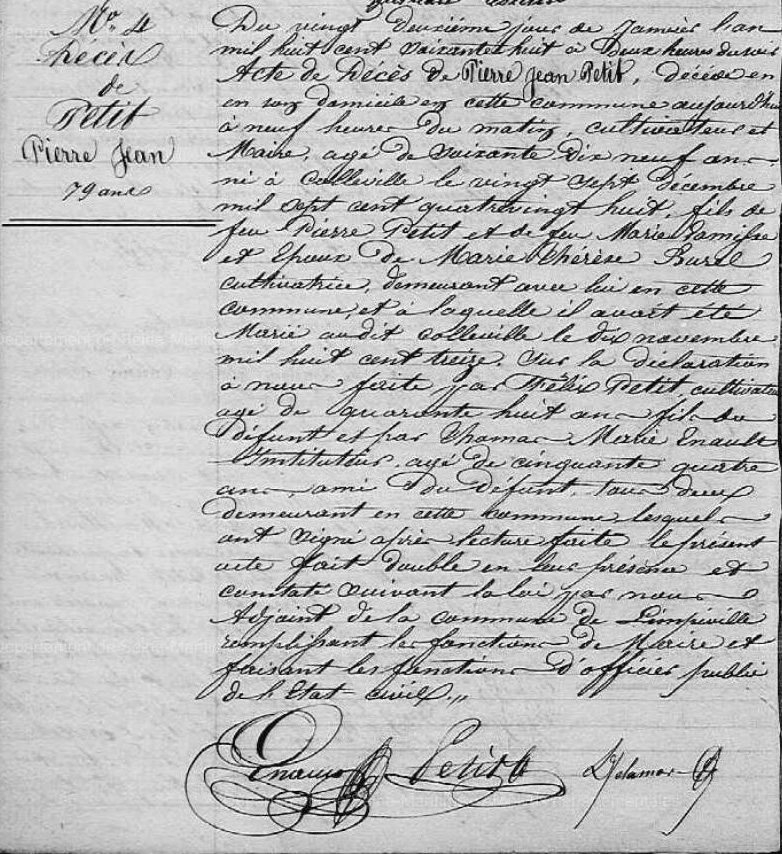 No 4
Décès
de
Petit
Pierre Jean
79 ans
Du vingt deuxième jour de Janvier l'an
mil huit cent soixante huit à deux heures du soir
Acte de Décès de Pierre Jean Petit, décédé en
en son domicile en cette commune aujourd'hui
à neuf heures du matin, cultivateur et
Maire, agé de soixante dix neuf ans
né à Colleville le vingt sept décembre
mil sept cent quatrevingt huit, fils de
feu Pierre Petit et de feu Marie
et Epoux de Marie Thérèse Burel
cultivatrice, demeurant avec lui en cette
commune, et à laquelle il avait été
Marié audit Colleville le dix novembre
mil huit cent treize. Sur la déclaration
à nous faite par Félix Petit cultivateur
agé de quarante huit ans fils du
défunt et par Thomas Marie Enault
Instituteur, agé de cinquante quatre
ans, ami du défunt, tous deux
demeurant en cette commune lesquels
ont signé après lecture faite le présent
acte fait double en leur présence et
constaté suivant la loi par nous
Adjoint de la commune de Limpiville
remplissant les fonctions de Maire et
faisant les fonctions d'officier public
de l'Etat civil.,,
Enault Petit Delamare